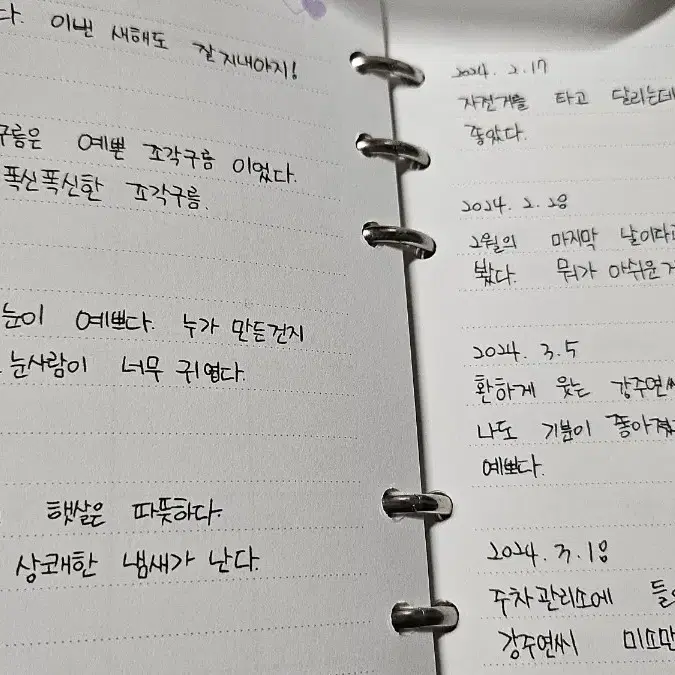 다. 이번 새해도 잘 지내야지!
구름은 예쁜 조각구름 이었다.
폭신폭신한 조각구름.
눈이 예쁘다. 누가 만든건지
눈사람이 너무 귀엽다.
햇살은 따뜻하다.
상쾌한 냄새가 난다.
2024. 2. 17
자전거를 타고 달리는데
좋았다.
2024. 2. 28
2월의 마지막 날이다
봤다. 뭐가 아쉬운
2024. 3. 5
환하게 웃는 강주연씨
나도 기분이 좋아졌
예쁘다.
2024. 3. 18
주차관리소에
강주연씨 미소만